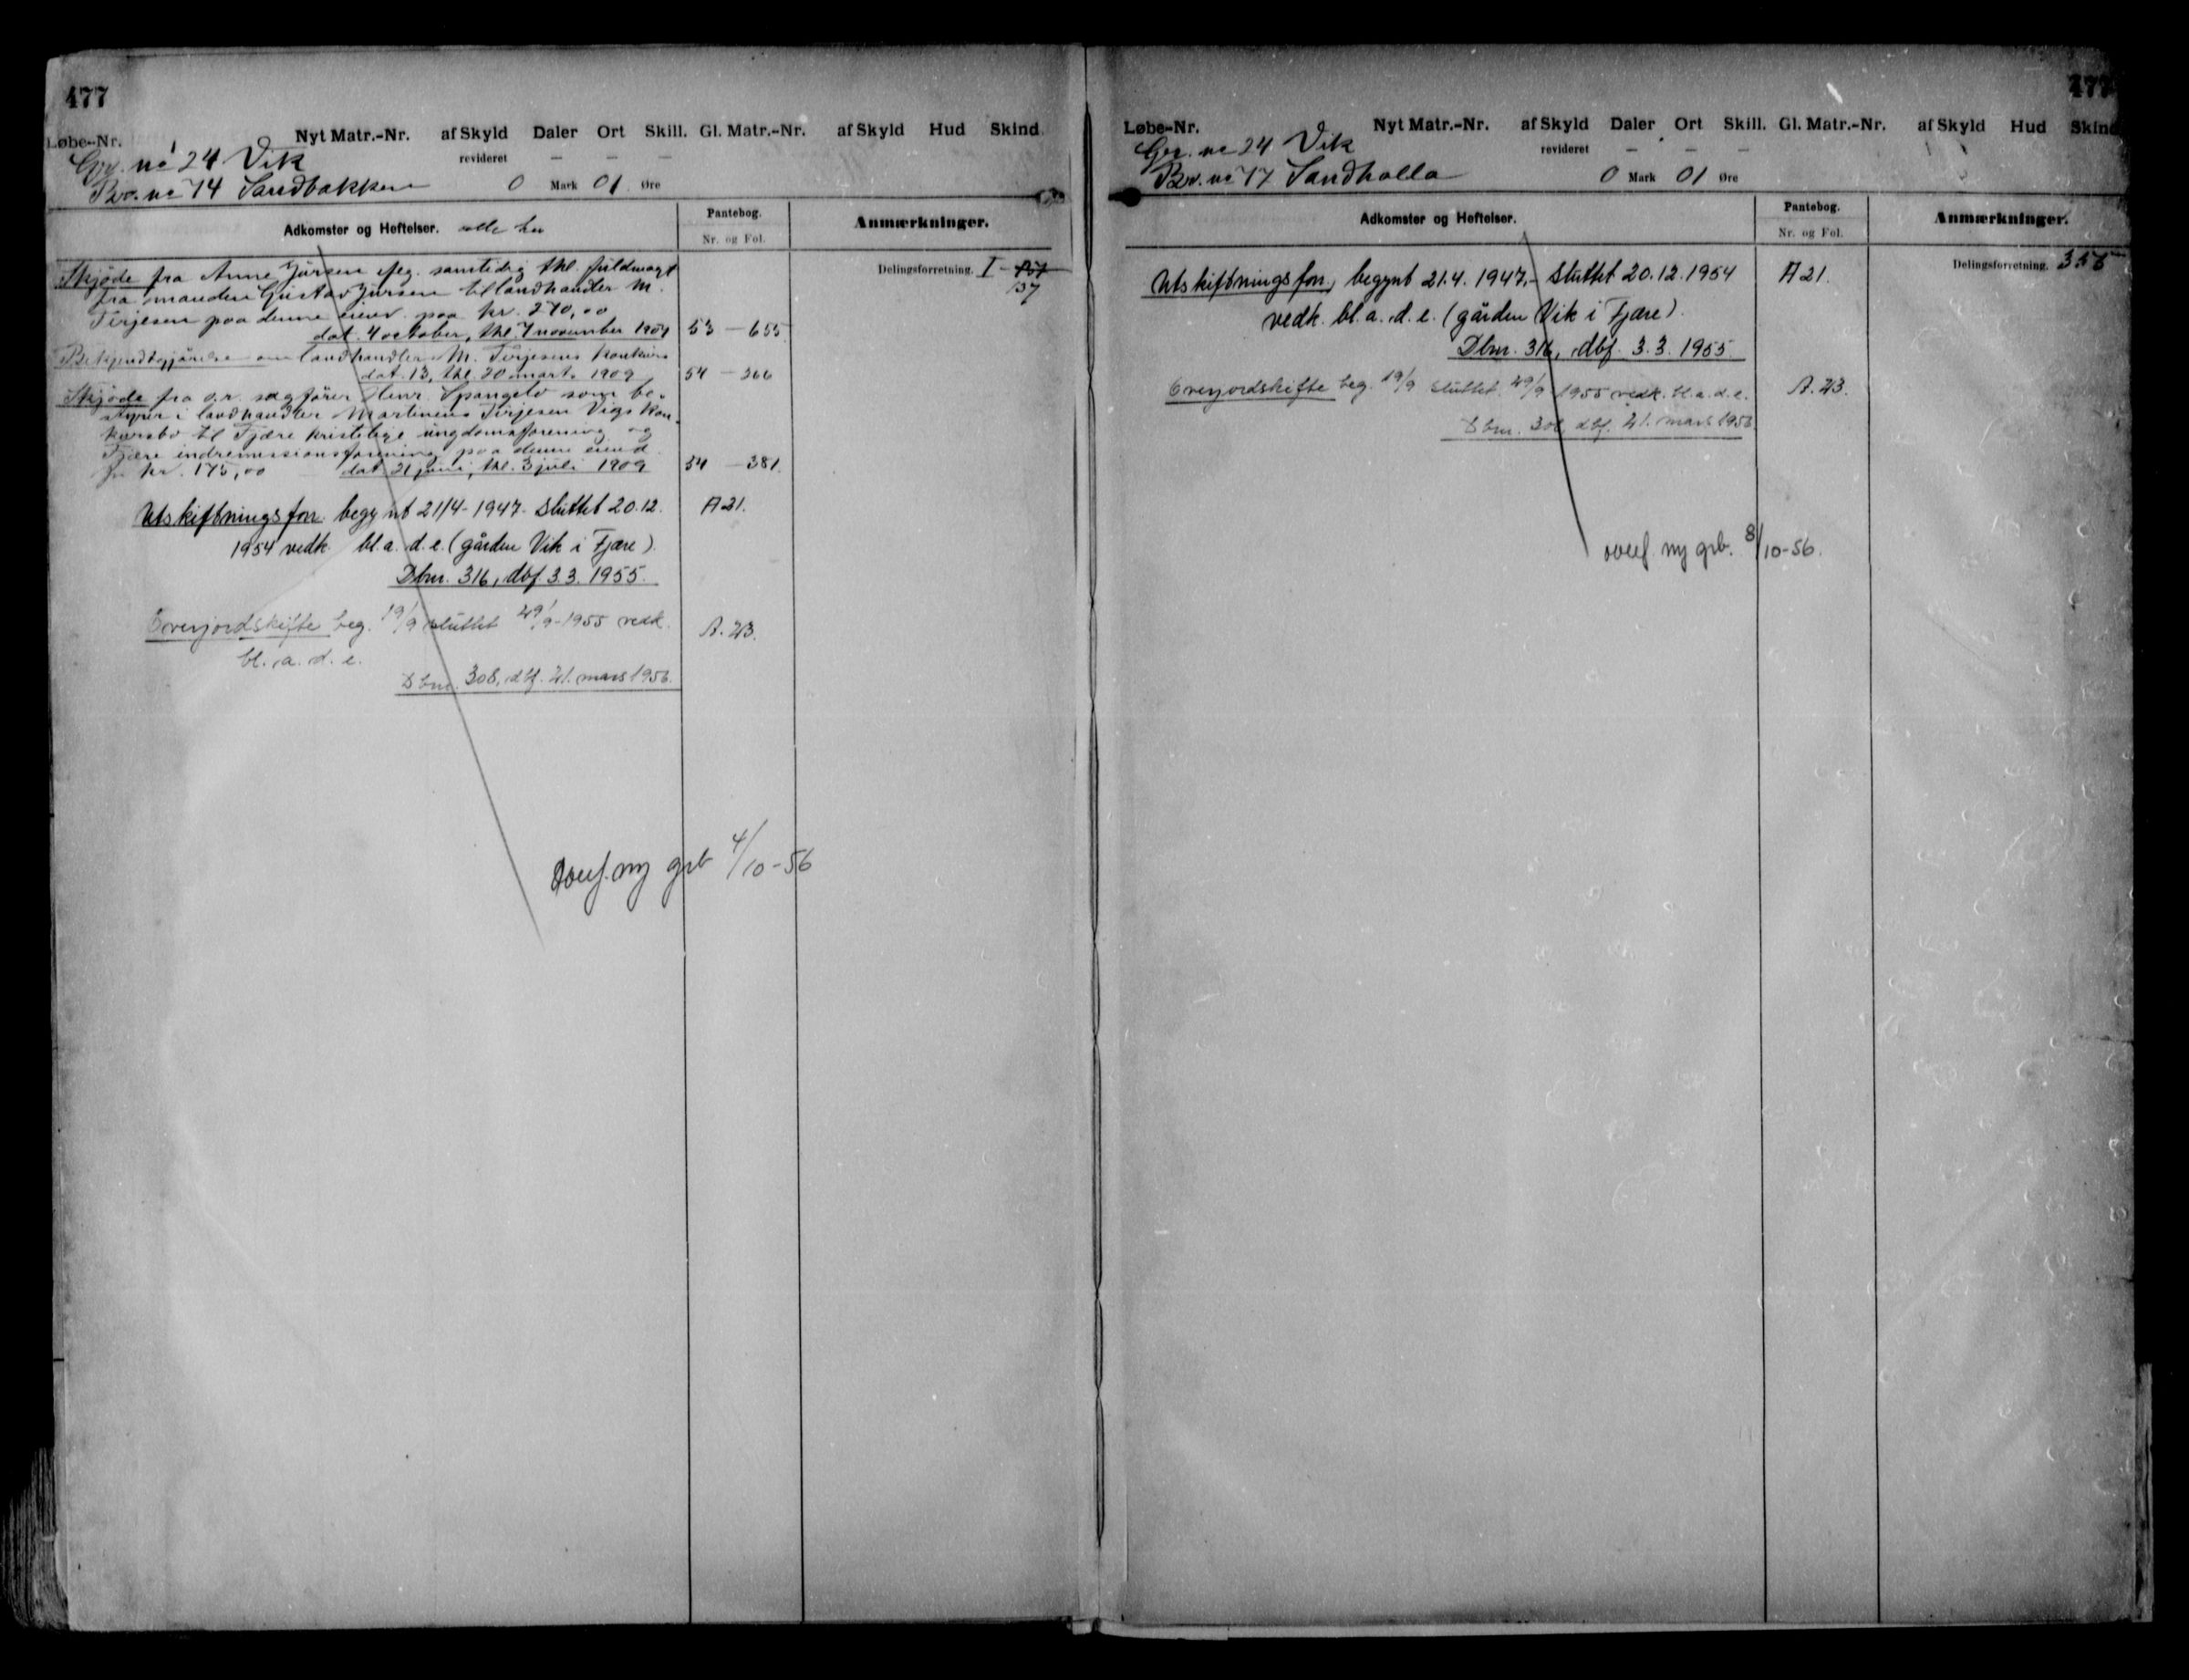 477
Løbe-Nr. Nyt Matr.-Nr. af Skyld Daler Ort Skill. Gl. Matr.-Nr. af Skyld Hud Skind.
Gr. nº 24 Vik revideret — — —
Br. nº 74 Sandbakken 0 Mark 01 Øre
Adkomster og Heftelser. Pantebog. Nr. og Fol. Anmærkninger.
Skjøde fra Anne Jürsen iføg. samtidig thl. fuldmagt Delingsforretning. I - 151
fra manden Gustav Jürsen til landhandler M. 137
Terjesen paa denne eiend. paa kr. 270,00
dat. 4 october, thl. 7 november 1904 53 — 655
Bekjendtgjørelse om landhandler M. Terjesens konkurs
dat. 13, thl. 20 marts 1909 54 — 266
Skjøde fra o.r. sagfører Henr. Spangelo som be-
styrer i landhandler Martinius Terjesen Vigs kon-
kursbo til Fjære kristelige ungdomsforening og
Fjære indremissionsforening paa denne eiend.
for kr. 175,00 dat. 21 juni, thl. 3 juli 1909 54 — 381.
Utskiftningsforr. begynt 21/4-1947. Sluttet 20.12. A 21.
1954 vedk. bl. a. d. e. (gården Vik i Fjære).
Dbnr. 316, dbf. 3.3. 1955.
Overjordskifte beg. 19/9 sluttet 29/9-1955 vedk. A. 23.
bl. a. d. e.
Dbnr. 308, dbf. 21. mars 1956.
Overf. ny grb 4/10-56
477
Løbe-Nr. Nyt Matr.-Nr. af Skyld Daler Ort Skill. Gl. Matr.-Nr. af Skyld Hud Skind
Gr. nº 24 Vik revideret — — —
Br. nº 77 Sandholla 0 Mark 01 Øre
Adkomster og Heftelser. Pantebog. Nr. og Fol. Anmærkninger.
Delingsforretning.
Utskiftningsforr, begynt 21.4. 1947.- Sluttet 20.12.1954 A 21.
vedk. bl. a. d. e. (gården Vik i Fjære).
Dbnr. 316, dbf. 3.3. 1955
Overjordskifte beg. 19/9 sluttet 29/9-1955 vedk. bl. a. d. e. A. 23.
Dbnr. 308, dbf. 21. mars 1956
overf. ny grb. 8/10-56.